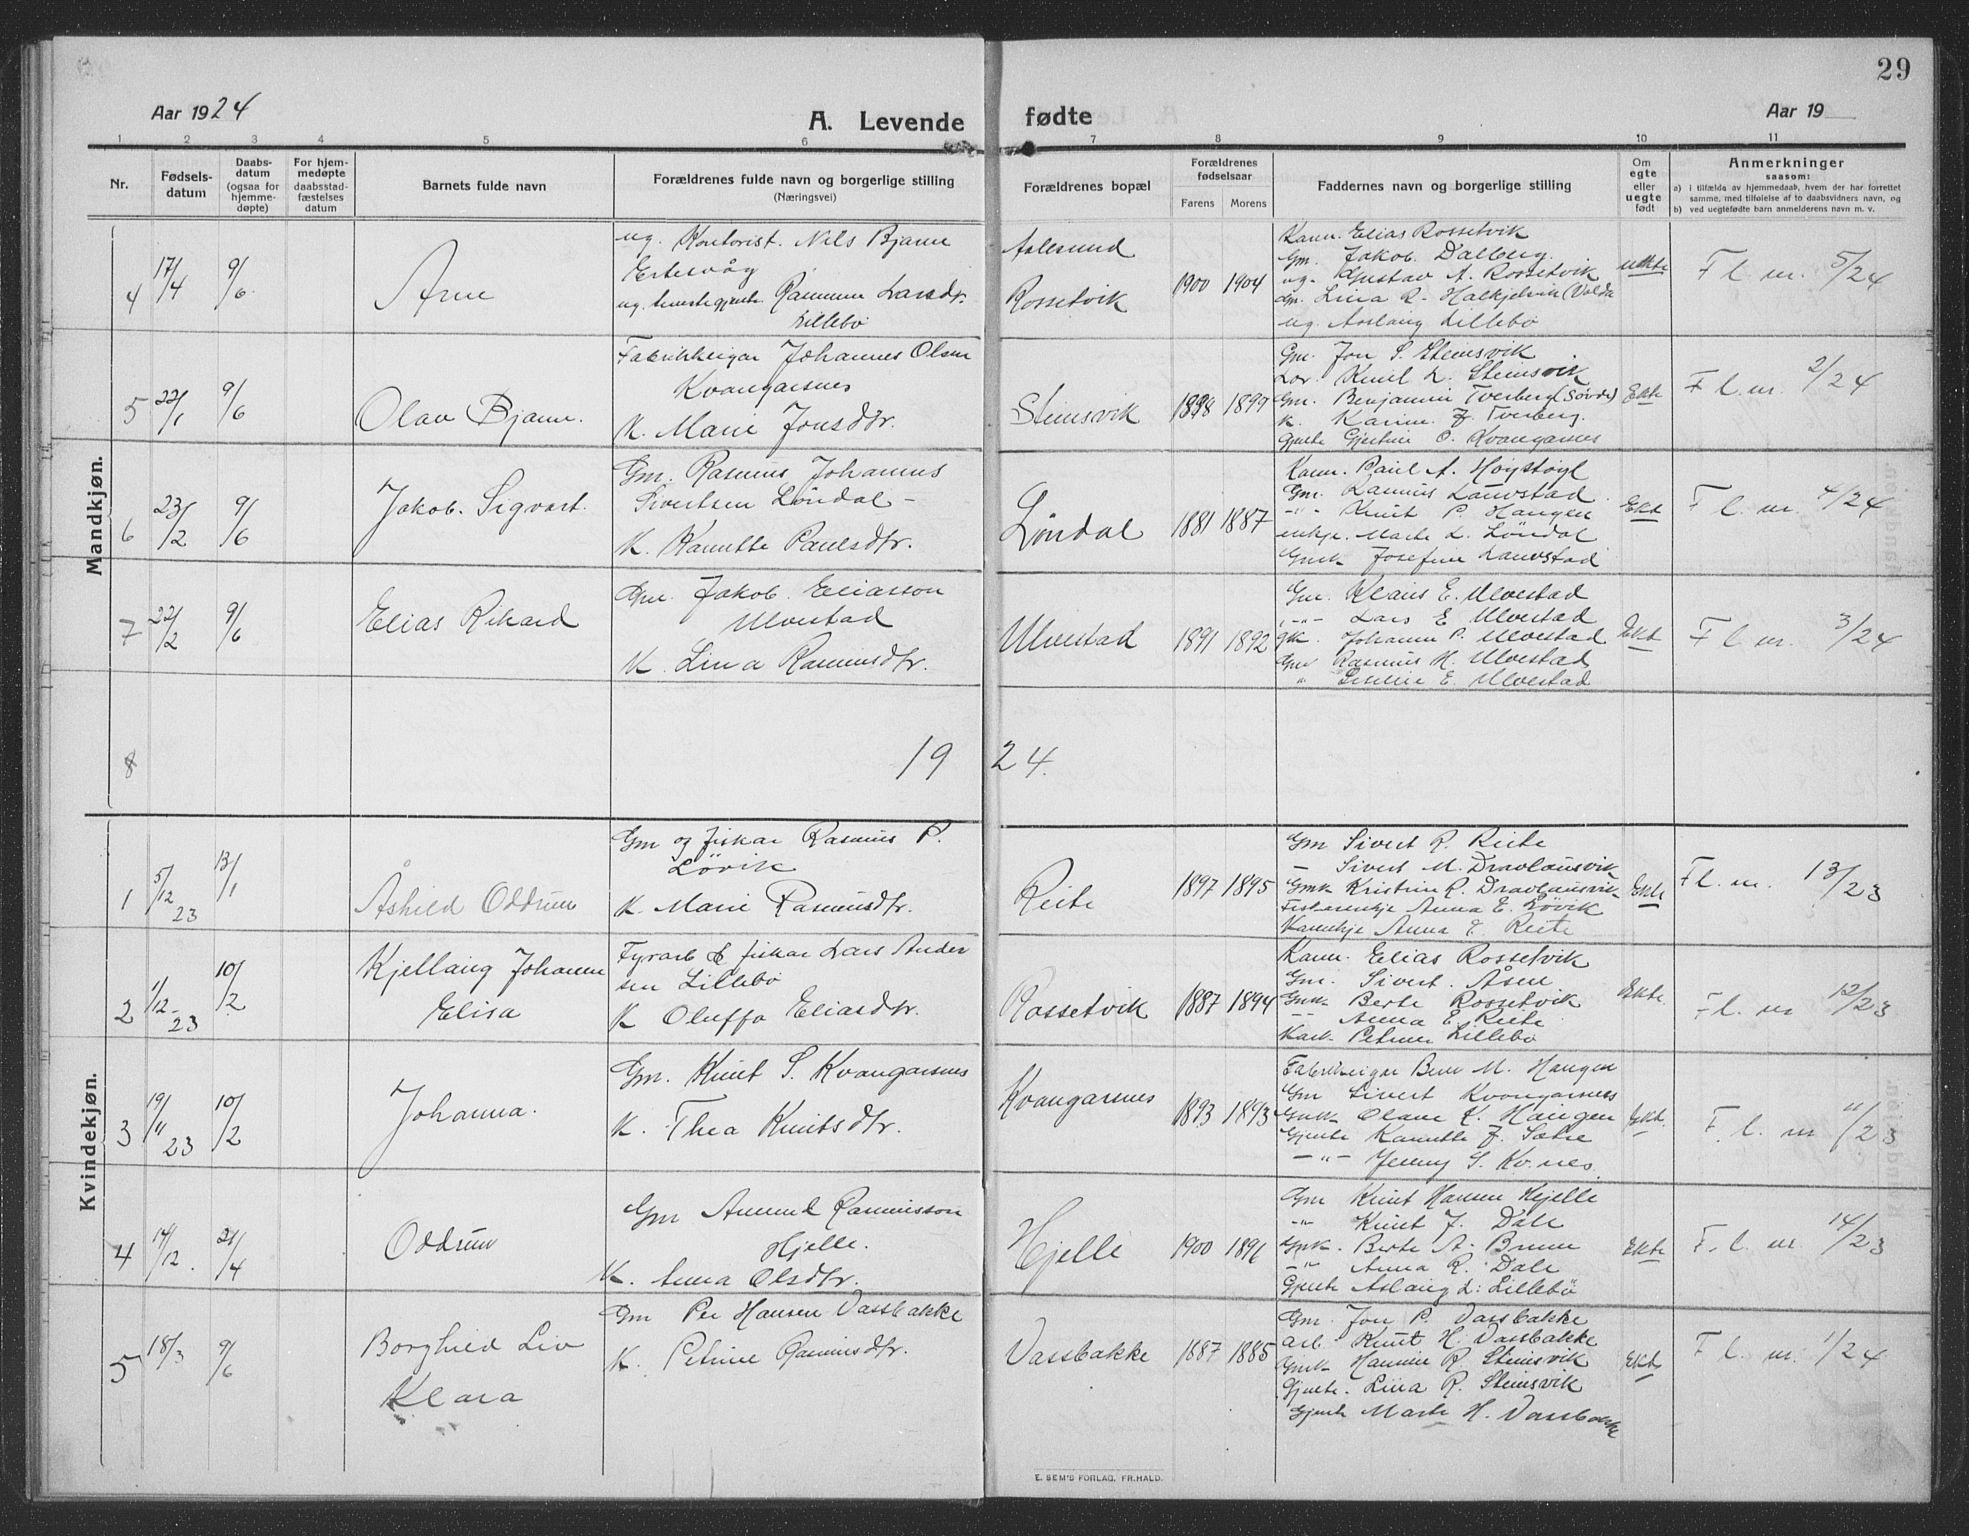 29
Aar 1924
A. Levende fødte
Aar 19
1 2 3 4 5 6 7 8 9 10 11
Nr.
Fødsels-
datum
Daabs-
datum
(ogsaa for
hjemme-
døpte)
For hjem-
medøpte
daabsstad-
fæstelses
datum
Barnets fulde navn
Forældrenes fulde navn og borgerlige stilling
(Næringsvei)
Forældrenes bopæl
Forældrenes
fødselsaar
Farens Morens
Faddernes navn og borgerlige stilling
Om
egte
eller
uegte
født
Anmerkninger
saasom:
a) i tilfælde av hjemmedaab, hvem der har forrettet
samme, med tilføielse af to daabsvidners navn, og
b) ved uegtefødte barn anmelderens navn m. v.
Mandkjøn.
4 17/4 9/6 Arne
ug. Kontorist. Nils Bjarne
Ertesvåg
ug. Rasmine Larsdtr.
Lillebø
Aalesund
Rossetvik
1900 1904
Kaar. Elias Rossetvik
Gm. Jakob Dalberg.
ug. Gustav A. Rossetvik
Gm. Lina R. Halkjelsvik (Volda
ug. Aaslaug Lillebø
uekte
Fl. m. 5/24
5 22/1 9/6 Olav Bjarne.
Fabrikkeigar Johannes Olsen
Kvangarsnes
K. Marie Jonsdtr.
Steinsvik
1898 1899
Gm. Jon S. Steinsvik
Knut L. Steinsvik
Gm. Benjamin Tverberg (Søvde)
K. Karine J. Tverberg.
Gjente Gjertine O. Kvangarsnes
Ekte
Fl. m 2/24
6 23/2 9/6 Jakob. Sigvart.
Gm. Rasmus Johannes
Sivertsen Løndal -
K. Kanutte Paulsdtr.
Løndal
1881 1887
Kaar. Paul A. Høystøyl
Gm. Rasmus Lauvstad
-"- Knut P. Haugen
enkje. Marte L. Løndal
Gmk Josefine Lauvstad
Ekt
Fl. m. 4/24
7 22/2 9/6 Elias Rikard
Gm. Jakob. Eliasson
Ulvestad
K. Lina Rasmusdtr.
Ulvestad
1891 1892
Gm. Klaus E. Ulvestad
-"- Lars E Ulvestad
gk. Johanne P. Ulvestad
Gm Rasmus H. Ulvestad
" E. Ulvestad
Ekt
Fl m. 3/24
8
1924.
Kvindekjøn.
1 5/12 23 13/1 Åshild Oddrun
Gm og fiskar Rasmus P.
Løvik
K. Marie Rasmusdtr.
Reite
1897 1895
Gm Sivert R. Reite
- Sivert M. Dravlausvik
Gmk Kristine R. Dravlausvik
Fiskarenkje Anna E. Løvik
Kaarenkje Anna E. Reite
Ekte
Fl. m. 13/23
2 1/12 23 10/2 Kjellaug Johanne
Elisa
Fyrarb & fiskar Lars Ander
sen Lillebø
K Oluffa Eliasdtr.
Rossetvik
1887 1894
Kaar. Elias Rossetvik
Gm. Sivert. Åsen
Gmk Berte Rossetvik
-"- Anna E. Reite
Kark Petrine Lillebø
Ekte.
Fl. m 12/23
3 19/11 23 10/2 Johanna.
Gm. Knut S. Kvangarsnes
K. Thea Knutsdtr.
Kvangarsnes
1893 1893
Fabrikkeigar Bern M. Haugen
Gm Sivert Kvangarsnes
Gmk Olave K. Haugen
Gjente Kanutte J. Sætre
-"- Jenny S. Kv.nes.
Ekt.
F. l. m 11/23
4 14/12. 21/4 Oddrun
Gm Amund Rasmusson
Hjelle.
K. Anna Olsdtr.
Hjelle
1900 1896
Gm Knut Hansen Hjelle
-"- Knut J. Dale
Gmk. Berte A. Brune
-"- Anna R. Dale
Gjente Aslaug L: Lillebø
Ekte
F. l. m 14/23
5 18/3 9/6 Borghild Liv
Klara
Gm Per Hansen Vassbakke
K. Petrine Rasmusdtr.
Vassbakke
1887 1885
Gm. Jon P. Vassbakke
arb. Knut H. Vassbakke
Gmk Hannine R. Steinsvik
Gjente. Lina R. Steinsvik
Gjente Marte H. Vassbakke
Ekt
Fl. m. 1/24
E. SEM'S FORLAG, FR.HALD.